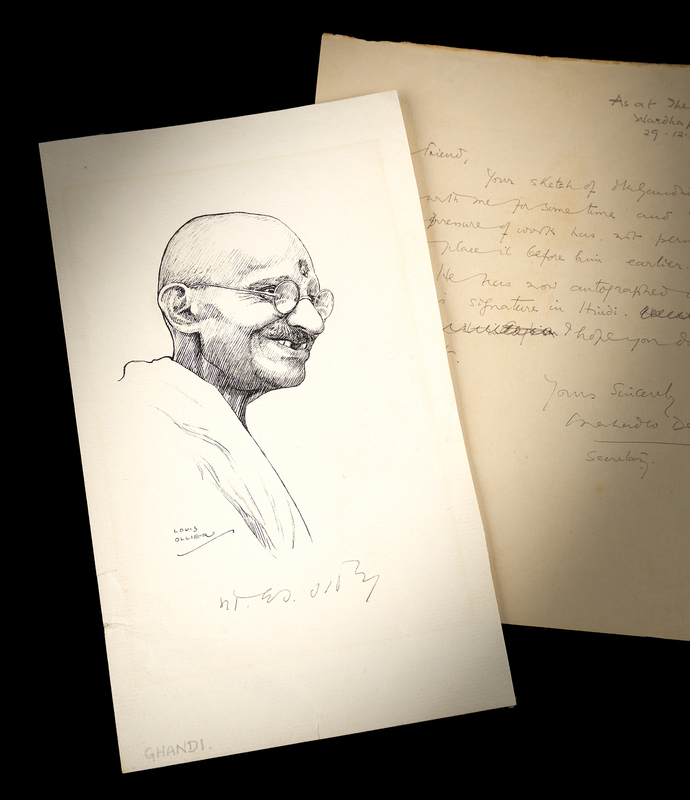 LOUIS
OLLIER
मो. क. गांधी
GHANDI.
As at The
Wardha
29.12.
friend,
Your sketch of
with me for some time and
pressure of work has not
place it before him earlier
He has now autographed
signature in Hindi.
I hope you
Yours Sincerely
Secretary.